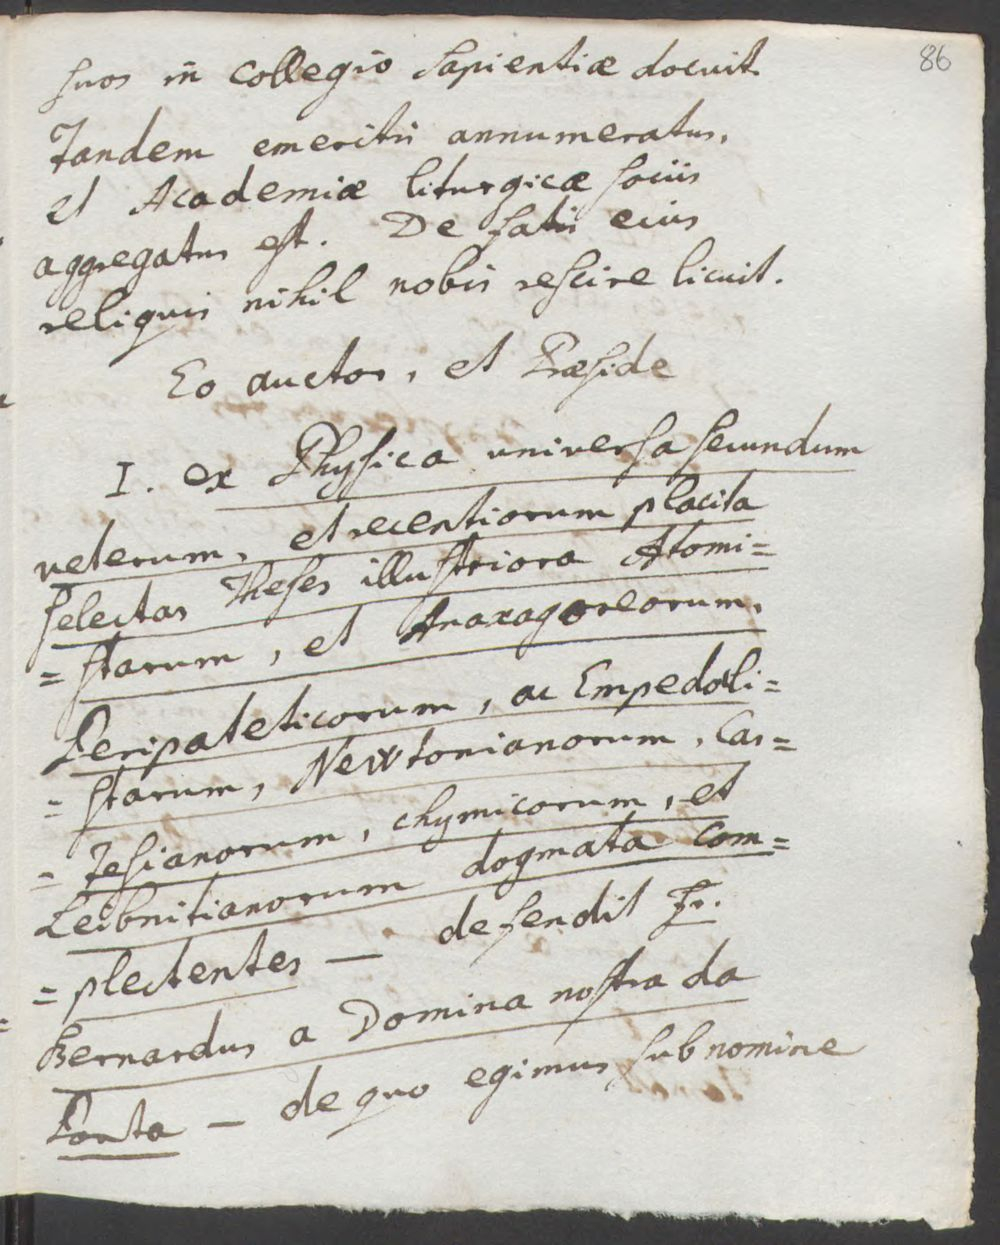 86
suos in collegio sapientiæ docuit.
Tandem emeritis annumeratus,
et Academiæ liturgicæ sociis
aggregatus est. De fatis eius
reliquis nihil nobis rescire licuit.
Eo auctore, et Præside
I. ex Physica universa secundum
veterum, et recentiorum placita
selectas Theses illustriora Atomi=
=starum, et Anaxagoreorum,
Peripateticorum, ac Empedocli=
=starum, Newtonianorum, Car=
=tesianorum, chymicorum, et
Leibnitianorum dogmata com=
=plectentes — defendit Fr.
Bernardus a Domina nostra da
Ponta — de quo egimus sub nomine